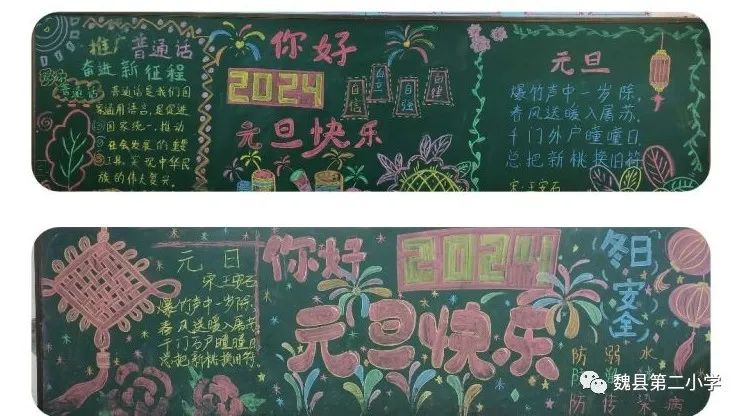 推广普通话
奋进新征程
普通话是我们国
家通用语言，是促进
国家统一、推动
社会发展的重要
工具，实现中华民
族的伟大复兴。
你好
2024
自信
自立
自强
元旦快乐
元旦
爆竹声中一岁除，
春风送暖入屠苏，
千门万户曈曈日
总把新桃换旧符
宋：王安石
元日
宋 王安石
爆竹声中一岁除，
春风送暖入屠苏，
千门万户曈曈日
总把新桃换旧符。
你好
2024
元旦快乐
冬日
安全
防弱水
防传染病
魏县第二小学